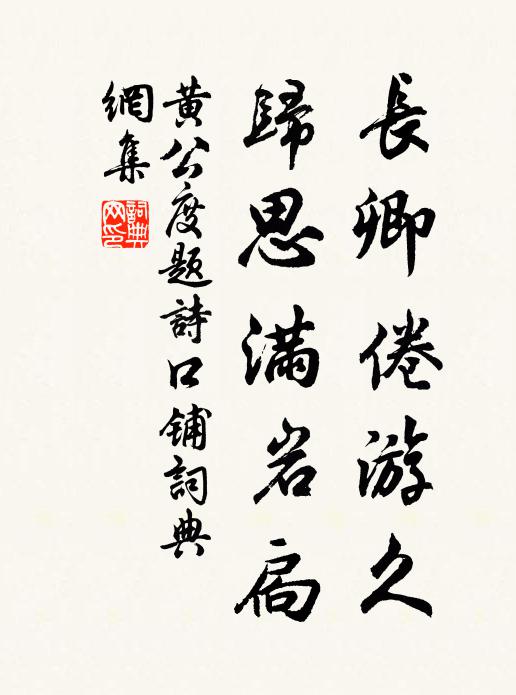 長卿倦游久
歸思滿岩扃
黃公度題詩口鋪詞典
網集
詞典
网印